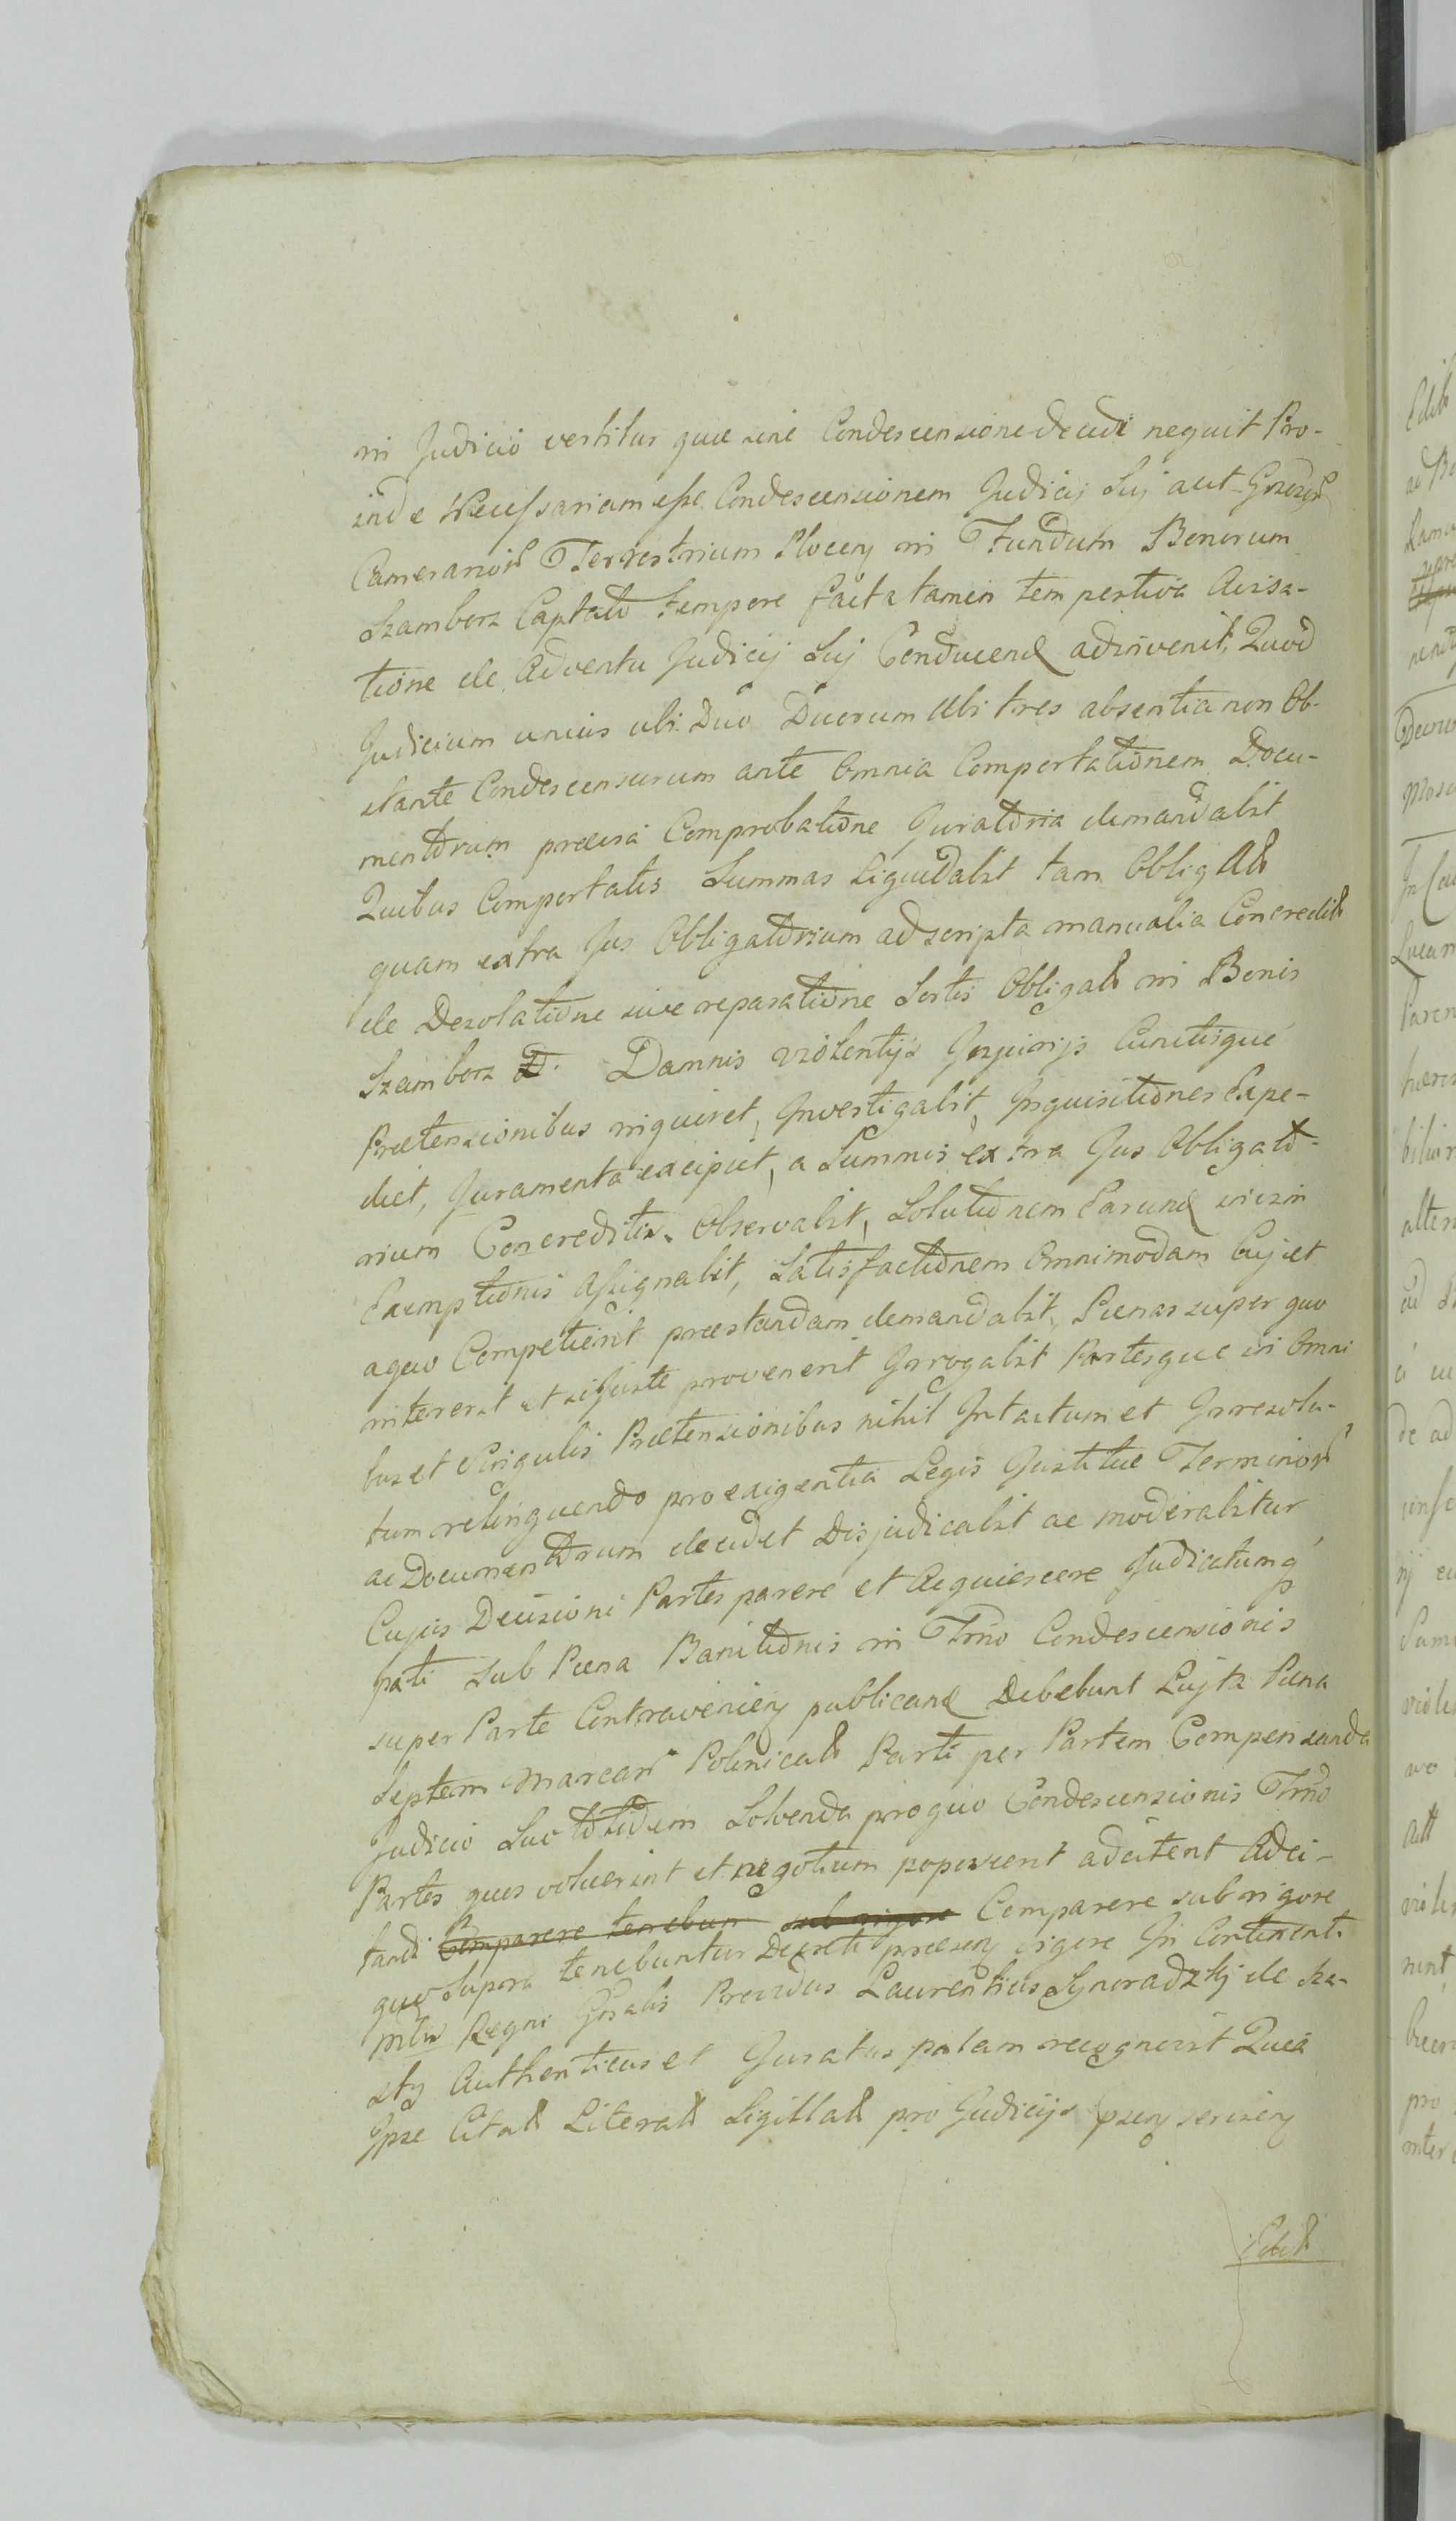 in Judicio vertitur quae sine Condescensione decidi nequit Pro-
inde Necessariam esse Condescensionem Judicij Sui aut
Camerarior Terrestrium Plocen in Fundum Bonorum
Szamborz Captato tempore facta tamen tempestiva Avisa-
tione de Adventu Judicij Sui Conducend adinvenit, Quod
Judicium unius ubi Duo Duorum Ubi tres absentia non Ob-
stante Condescensurum ante Omnia Comportationem Docu-
mentorum praevia Comprobatione Juratoria demandabit
Quibus Comportatis Summas Liquidabit tam Obligat
quam extra Jus Obligatorium ad scripta manualia Concredit
de Desolatione sive reparatione Sortis Obligat in Bonis
Szamborz D. Damnis violentijs Injurijs Cunctisque
Praetensionibus inquiret, Investigabit, Inquisitiones Expe-
diet, Juramenta excipiet, a Summis extra Jus Obligato-
rium Concreditis Observabit, Solutionem Earund
Exemptionis assignabit, Satisfactionem Omnimodam Cuj et
a quo Competierit praestandam demandabit, Paenas super quo
intererit et si Juste provenerit Irrogabit Partesque in Omni
bus et Singulis Praetensionibus nihil Intactum et Irresolu-
tum relinquendo pro exigentia Legis Justitiae Terminor
ac Documentorum decidet Disjudicabit ac moderabitur
Cujus Decisioni Partes parere et Acquiescere Judicatumq
pati sub Paena Banitionis in Trno Condescensionis
super Parte Contravenien publicand Debebunt Lujta Paena
Septem Marcar Polonical Parti per Partem Compensanda
Judicio Suo totidem Solvenda pro quo Condescensionis Trno
Partes quos voluerint et negotium poposcerit adcitent Adci-
tandi Comparere tenebun sub rigore Comparere sub rigore
quo Supora tenebuntur Decreti praesen vigore In Continenti
Regni Gnalis Providus Laurentius Synoradzkj de Sza-
sty Authenticus et Juratus palam recognovit Quia
Ipse Citat Literat Sigillat pro Judicijs psen
Edit